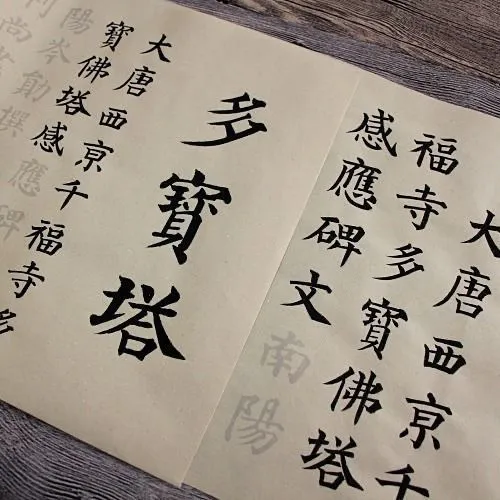 大唐西京千
福寺多寶佛塔
感應碑文南陽
多寶塔
大唐西京千福寺多
寶佛塔感應碑
陽岑勛撰
判尚